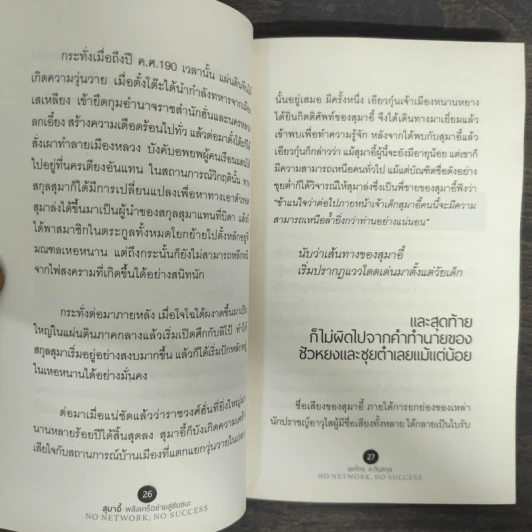 กระทั่งเมื่อถึงปี ค.ศ.190 เวลานั้น แผ่นดินจีนได้
เกิดความวุ่นวาย เมื่อตั๋งโต๊ะได้นำกำลังทหารจากเมือง
เสเหลียง เข้ายึดกุมอำนาจราชสำนักฮั่นและนครหลวง
ลกเอี๋ยง สร้างความเดือดร้อนไปทั่ว แล้วต่อมาตั๋งโต๊ะก็ได้
สั่งเผาทำลายเมืองหลวง บังคับอพยพผู้คนเรือนแสนให้
ไปอยู่ที่นครเตียงอันแทน ในสถานการณ์วิกฤตินั้น ทาง
สกุลสุมาก็ได้มีการเปลี่ยนแปลงเพื่อหาทางเอาตัวรอด
สุมาล่งได้ขึ้นมาเป็นผู้นำของสกุลสุมาแทนที่บิดา แล้ว
ได้พาสมาชิกในตระกูลทั้งหมดโยกย้ายไปตั้งหลักอยู่ที่
มณฑลเหอหนาน แต่ถึงกระนั้นก็ยังไม่สามารถหลีกหนี
จากไฟสงครามที่เกิดขึ้นได้อย่างสนิทนัก
กระทั่งต่อมาภายหลัง เมื่อโจโฉได้ผงาดขึ้นมาเป็น
ใหญ่ในแผ่นดินภาคกลางแล้วเริ่มเปิดศึกกับลิโป้ ทำให้
สกุลสุมาเริ่มอยู่อย่างสงบมากขึ้น แล้วก็ได้เริ่มปักหลัก
ในเหอหนานได้อย่างมั่นคง
ต่อมาเมื่อแน่ชัดแล้วว่าราชวงศ์ฮั่นที่ยิ่งใหญ่มา
นานหลายร้อยปีได้สิ้นสุดลง สุมาอี้ก็บังเกิดความเศร้า
เสียใจกับสถานการณ์บ้านเมืองที่แตกแยกวุ่นวายในเวลา
26
สุมาอี้ พลังเครือข่ายสู่ชัยชนะ
NO NETWORK, NO SUCCESS
นั้นอยู่เสมอ มีครั้งหนึ่ง เอียวกุ๋นเจ้าเมืองหนานหยาง
ได้ยินกิตติศัพท์ของสุมาอี้ จึงได้เดินทางมาเยี่ยมแล้ว
เข้าพบเพื่อทำความรู้จัก หลังจากได้พบกับสุมาอี้แล้ว
เอียวกุ๋นก็กล่าวว่า แม้สุมาอี้ผู้นี้จะยังมีอายุน้อย แต่เขาก็
มีความสามารถเหนือคนทั่วไป แม้แต่บัณฑิตชื่อดังอย่าง
ชุยต่ำก็ได้วิจารณ์ให้สุมาล่งซึ่งเป็นพี่ชายของสุมาอี้ฟังว่า
"ข้าแน่ใจว่าต่อไปภายหน้าเจ้าเด็กสุมาอี้คนนี้จะมีความ
สามารถเหนือล้ำยิ่งกว่าท่านอย่างแน่นอน"
นับว่าเส้นทางของสุมาอี้
เริ่มปรากฏแววโดดเด่นมาตั้งแต่วัยเด็ก
และสุดท้าย
ก็ไม่ผิดไปจากคำทำนายของ
ชัวหยงและชุยต่ำเลยแม้แต่น้อย
ชื่อเสียงของสุมาอี้ ภายใต้การยกย่องของเหล่า
นักปราชญ์อาวุโสผู้มีชื่อเสียงทั้งหลาย ได้กลายเป็นใบรับ
27
NO NETWORK, NO SUCCESS